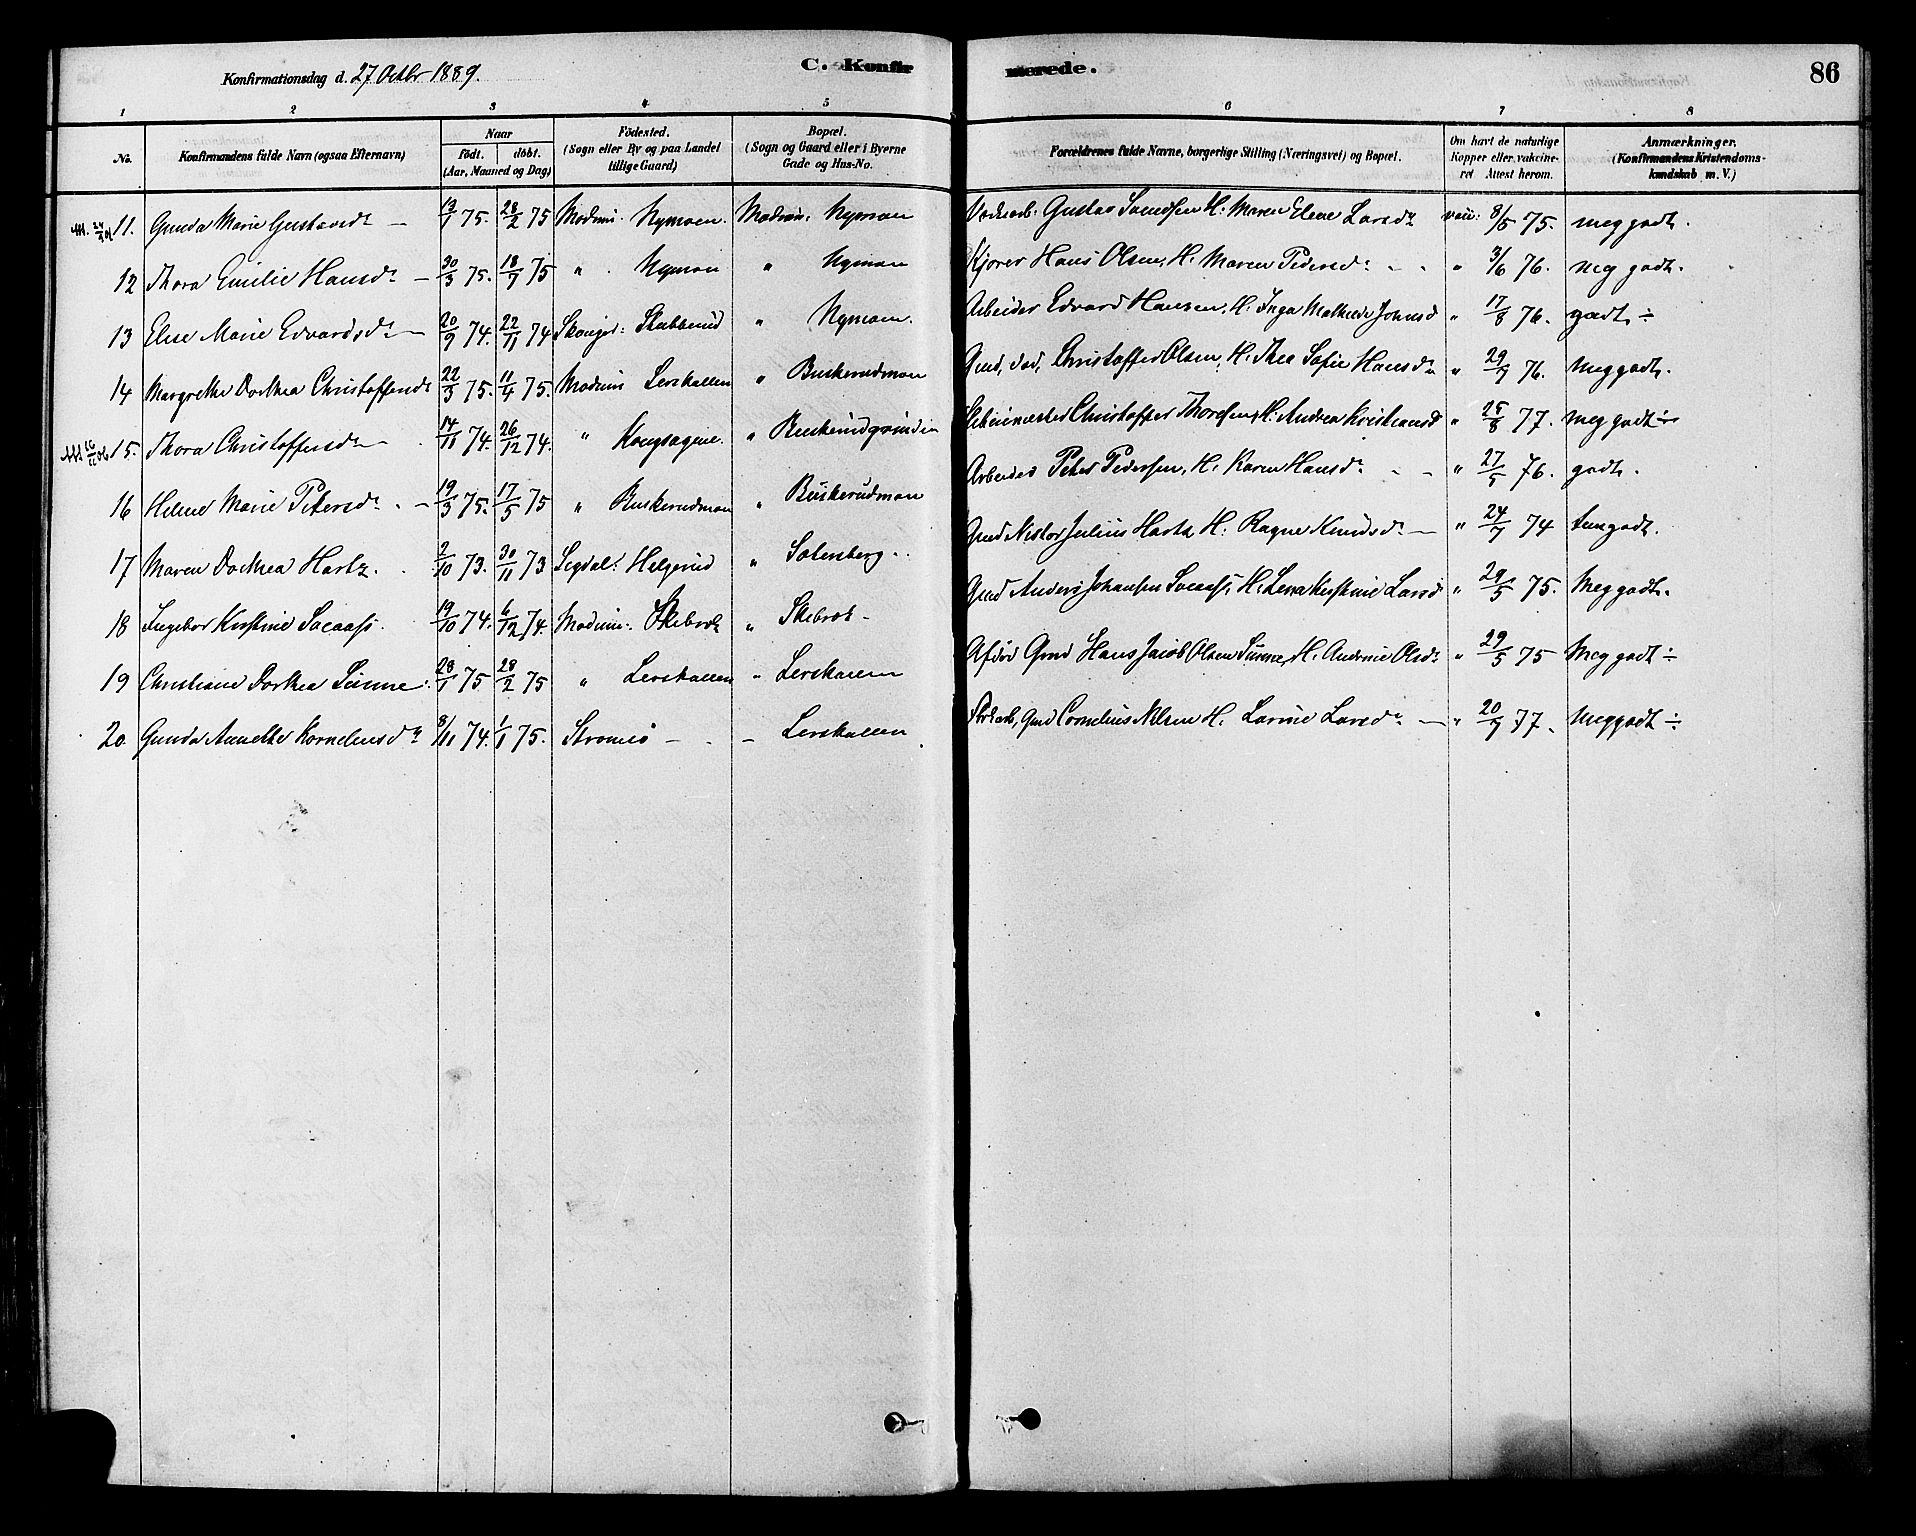 Konfirmationsdag d. 27 Octbr 1889.
C. Konfirmerede.
86
1 2 3 4 5 6 7 8
No. Konfirmandens fulde Navn (ogsaa Efternavn) Naar födt. döbt. (Aar, Maaned og Dag) Födested. (Sogn eller By og paa Landet tillige Gaard) Bopæl. (Sogn og Gaard eller i Byerne Gade og Hus-No. Forældrenes fulde Navne, borgerlige Stilling (Næringsvei) og Bopæl. Om havt de naturlige Kopper eller vakcineret Attest herom. Anmærkninger. (Konfirmandens Kristendomskundskab m. V.)
11. Gunda Marie Gustavsdr — 13/1 75. 28/2 75 Modum. Nymoen. Modum. Nymoen Gustav Svendsen H. Maren Elene Larsdr 8/5 75. meg godt.
12 Thora Emilie Hansdr — 30/3 75. 18/7 75 " Nymoen " Nymoen Kjører Hans Olsen, H. Maren Pedersdr " 3/6 76. meg godt.
13 Elise Marie Edvardsdr — 20/9 74. 22/11 74 Stubberud " Nymoen. Arbeider Edvard Hansen, H. Inga Mathilde Johnsd " 17/8 76. godt ÷
14 Margrethe Dorthea Christoffersdr 22/3 75. 11/4 75. Modum Lerskallen " Buskerudmoen Christoffer Olsen, H. Thea Sofie Hansdr " 29/9 76. Meg godt.
15. Thora Christoffersdr — 14/11 74. 26/12 74. " " Christoffer Thoresen, H. Andrea Kristiansd " 25/8 77. meg godt ÷
16 Helene Marie Petersdr — 19/3 75. 17/5 75 " Buskerudmoen " Buskerudmoen Arbeider Peter Pedersen, H. Karen Hansdr — " 27/5 76. godt.
17 Maren Dorthea Hartz. 2/10 73. 30/11 73 Sigdal. Helgerud " Solersberg. Gmd Nistor Julius Hartz H. Ragne Knudsdr — " 24/7 74 tem godt.
18 Ingebor Kirstine 19/10 74. 6/12 74. Modum. Skebrok " Skebrok Gmd Anders Johansen H. Lena Kirstine Larsd " 29/5 75. Meg godt.
19 Christiane Dorthea Sunne. 28/1 75 28/2 75 " Lerskallen " Lerskallen Afdød Gmd Hans Jacob Olsen Sunne, H. Andrine Olsdr " 29/5 75 Meg godt ÷
20 Gunda Annette Korneliusdr 8/11 74. 1/1 75. Strømsø — — Lerskallen Gmd Cornelius Nilsen H. Larine Larsdr — " 20/9 77. Meg godt ÷